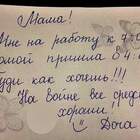 Маша!
Мне на работу к 7:0
домой пришла в 4.
буди как хочешь!!!
На войне все средс
хороши!!
Доча